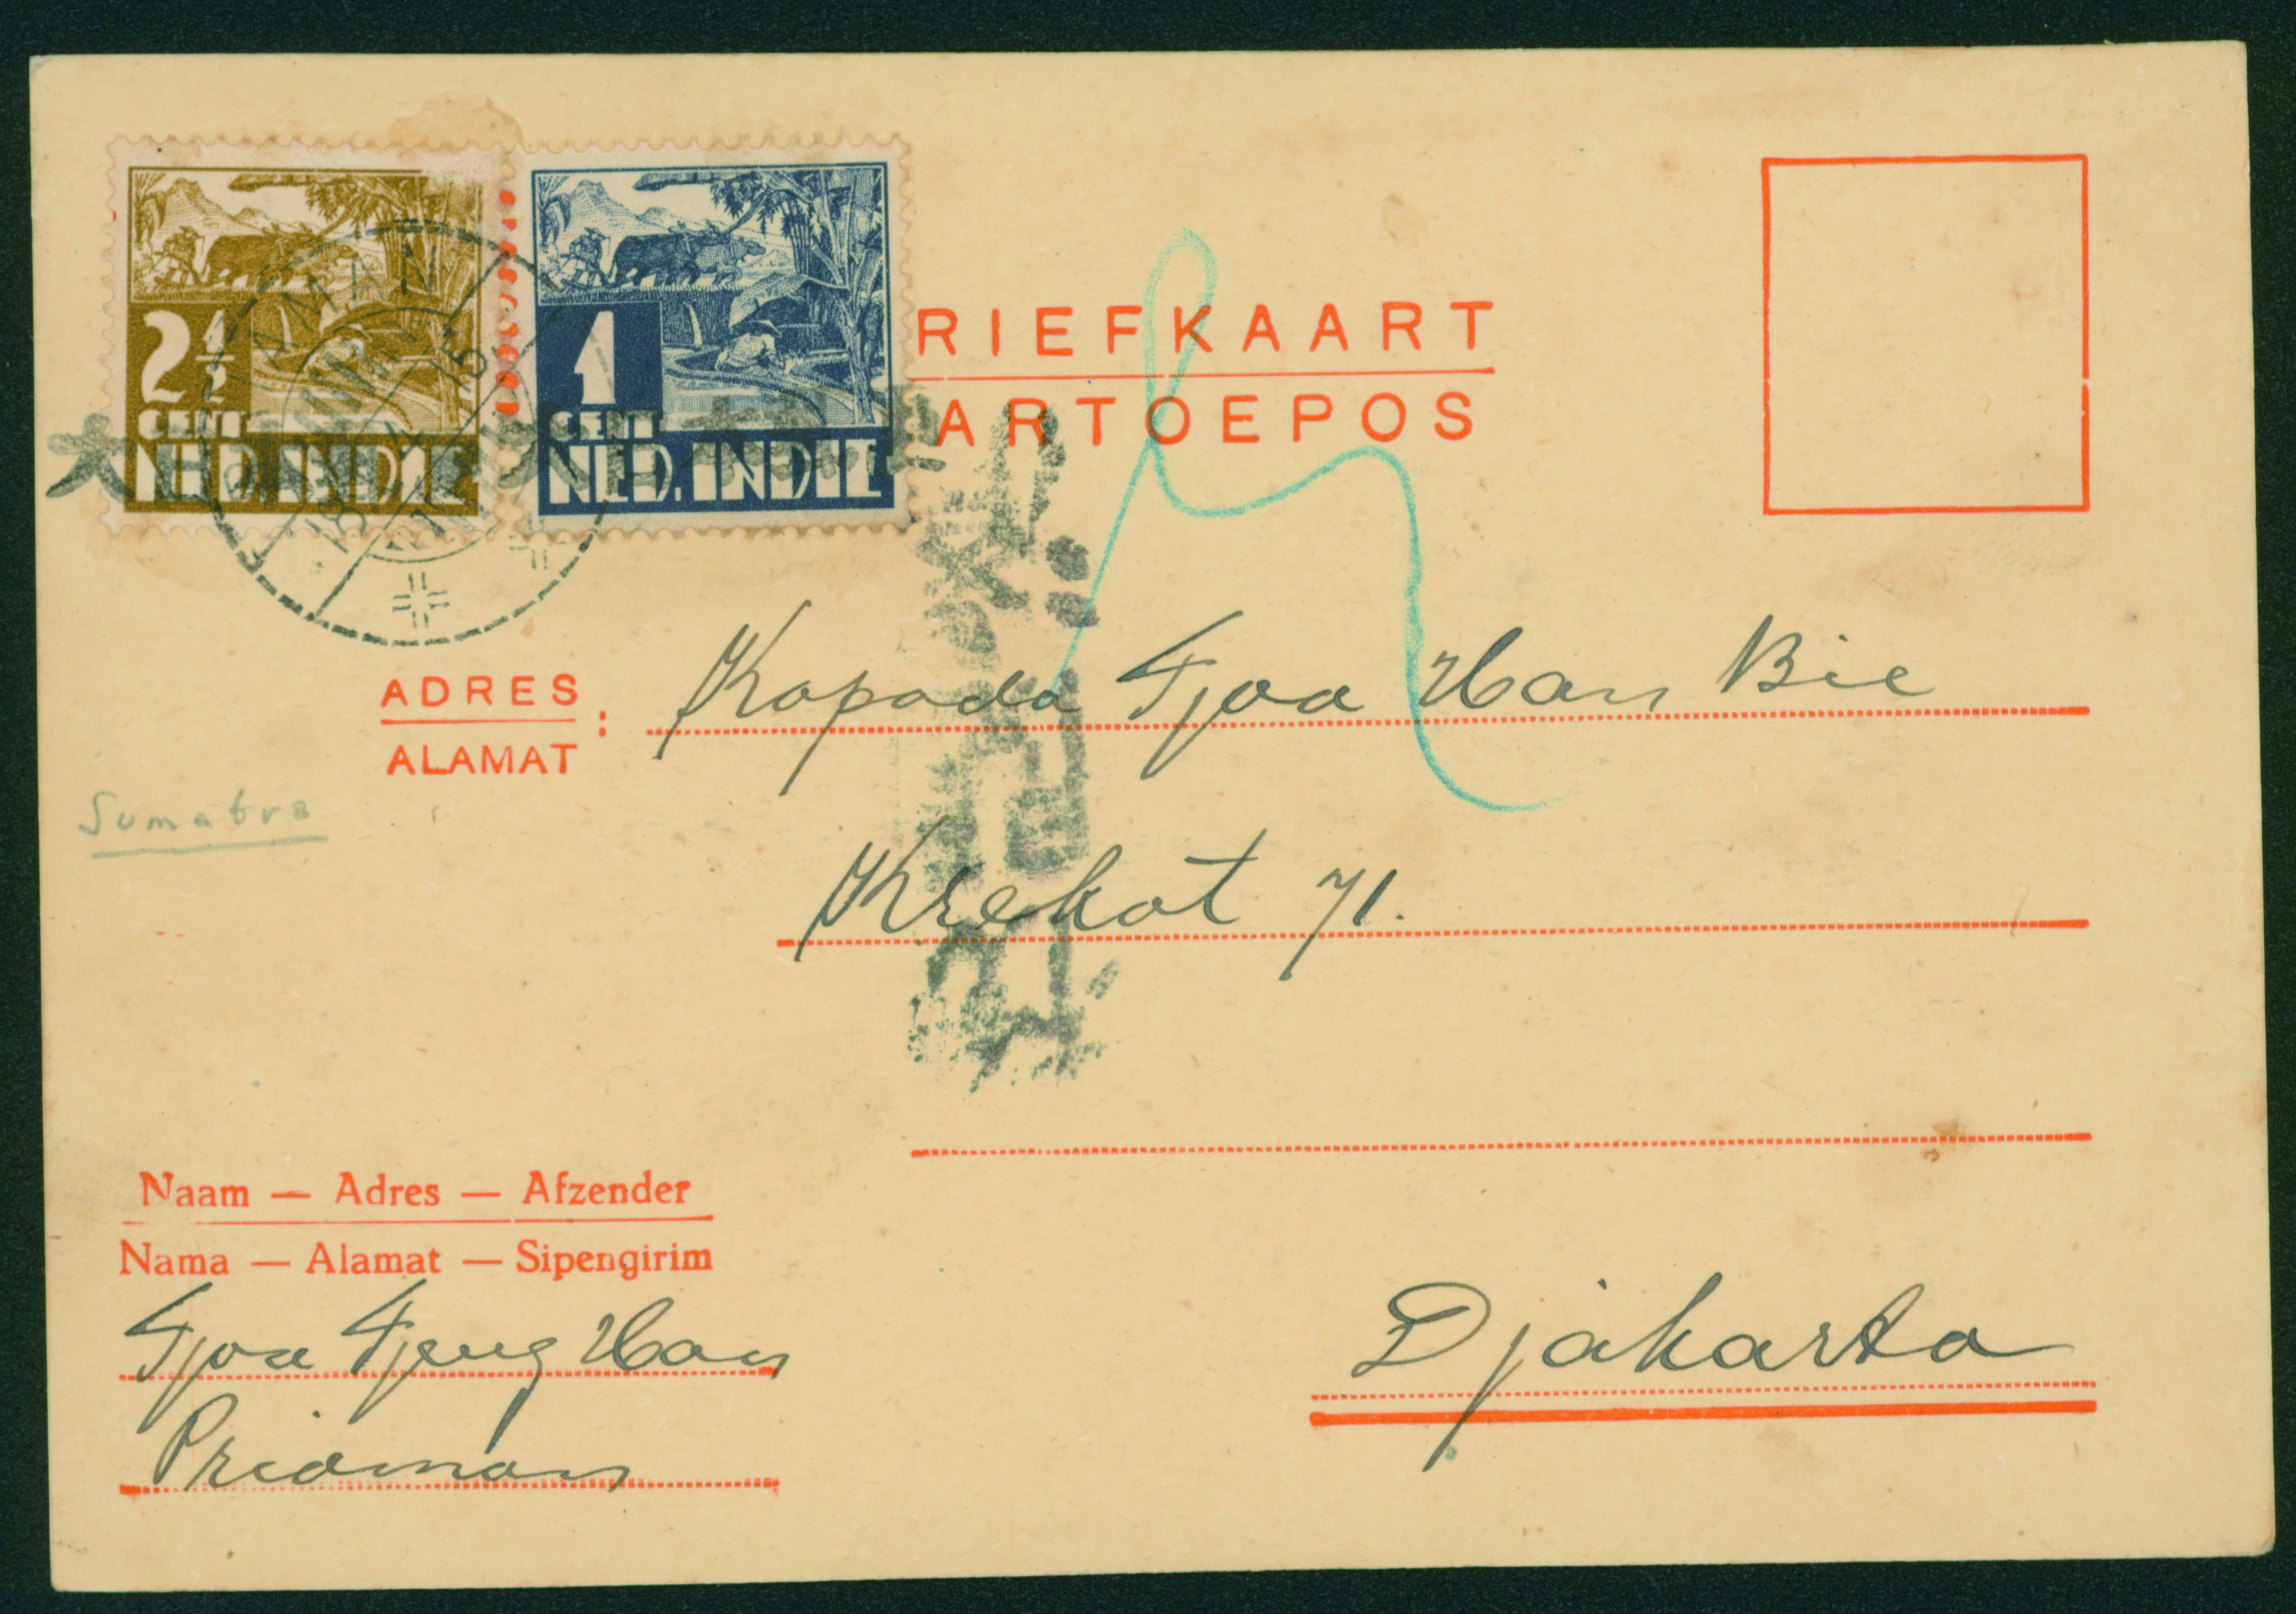 2½
CENT
NED. INDIE
1
CENT
NED. INDIE
RIEFKAART
ARTOEPOS
ADRES
ALAMAT
:
Kapada Tjoa Han Bie
Sumatra
Krekot 71.
Naam — Adres — Afzender
Nama — Alamat — Sipengirim
Tjoa Tjeng Han
Priaman
Djakarta